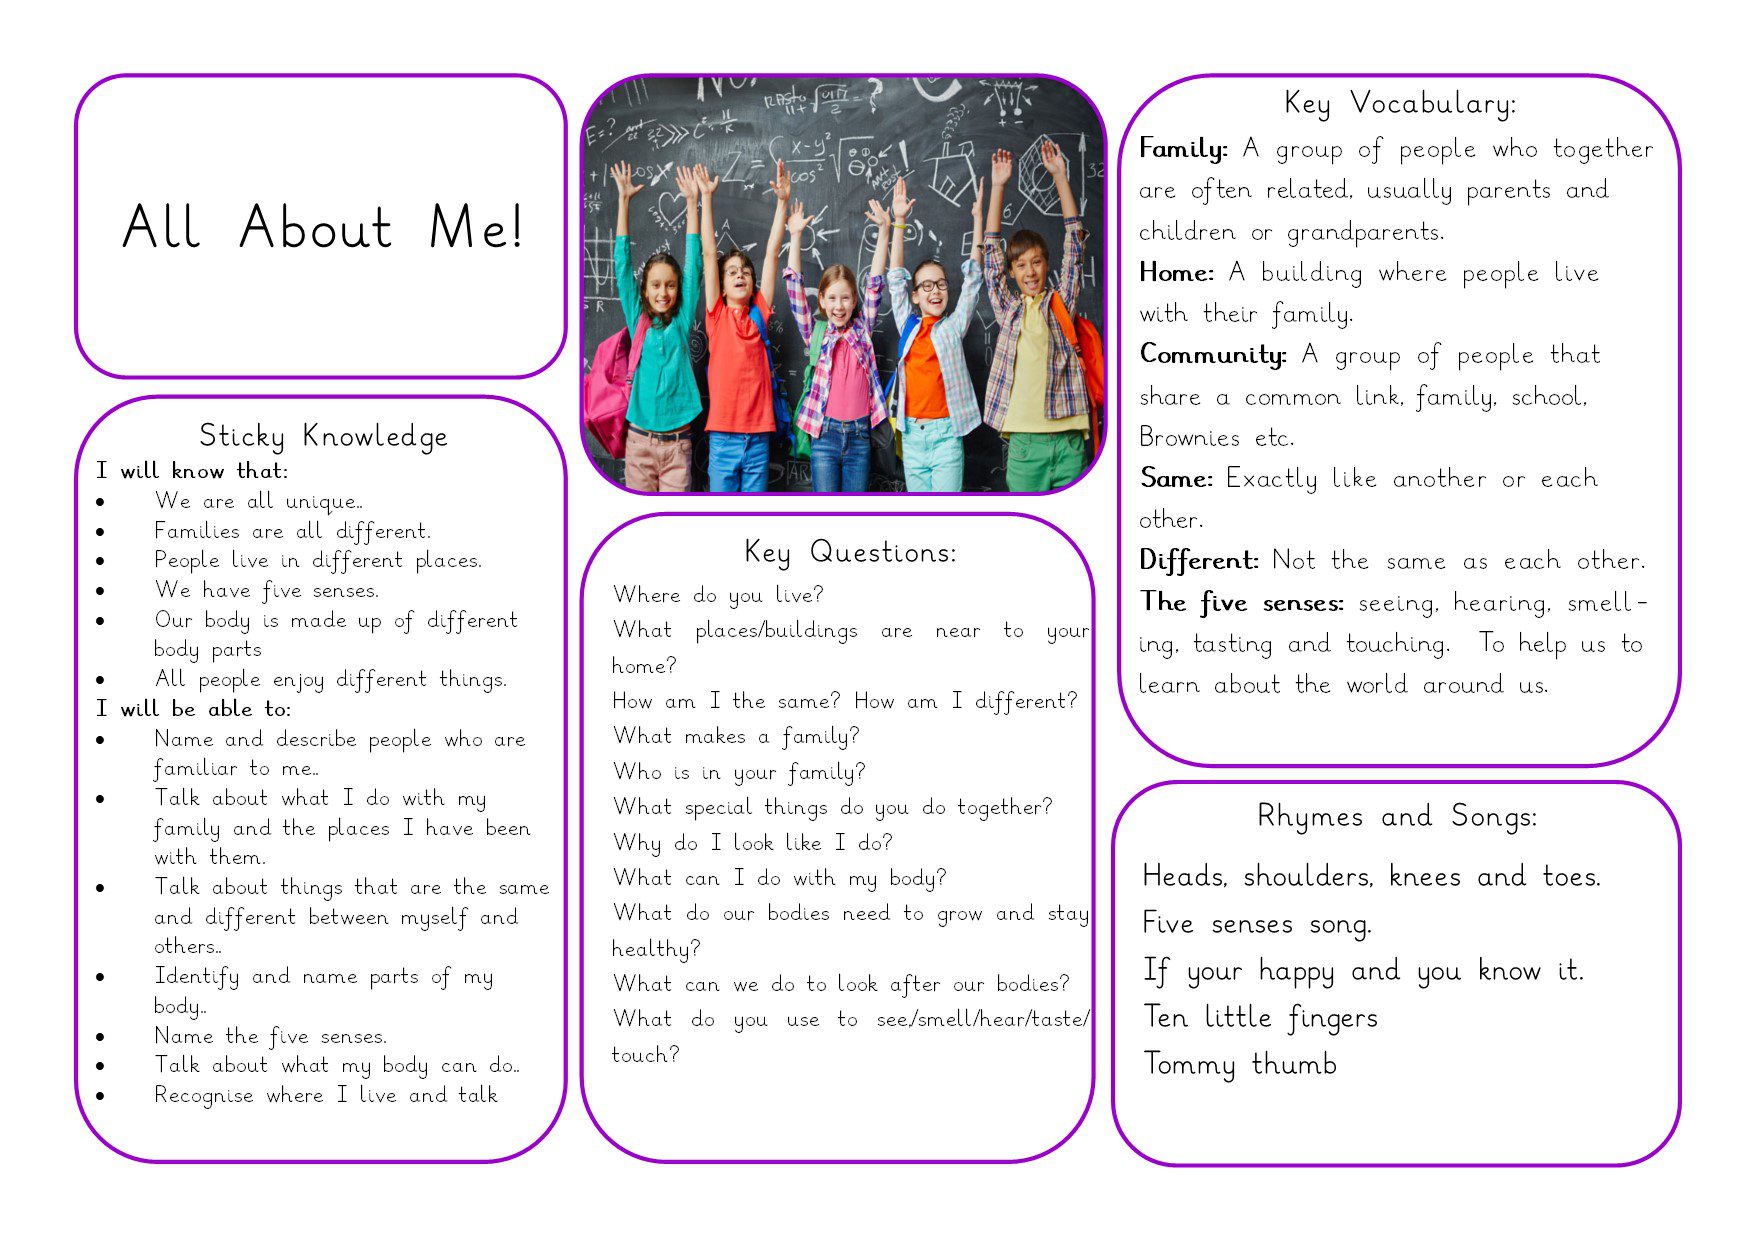 All About Me!
Sticky Knowledge
I will know that:
• We are all unique..
• Families are all different.
• People live in different places.
• We have five senses.
• Our body is made up of different
body parts
• All people enjoy different things.
I will be able to:
• Name and describe people who are
familiar to me..
• Talk about what I do with my
family and the places I have been
with them.
• Talk about things that are the same
and different between myself and
others..
• Identify and name parts of my
body..
• Name the five senses.
• Talk about what my body can do..
• Recognise where I live and talk
Key Questions:
Where do you live?
What places/buildings are near to your
home?
How am I the same? How am I different?
What makes a family?
Who is in your family?
What special things do you do together?
Why do I look like I do?
What can I do with my body?
What do our bodies need to grow and stay
healthy?
What can we do to look after our bodies?
What do you use to see/smell/hear/taste/
touch?
Key Vocabulary:
Family: A group of people who together
are often related, usually parents and
children or grandparents.
Home: A building where people live
with their family.
Community: A group of people that
share a common link, family, school,
Brownies etc.
Same: Exactly like another or each
other.
Different: Not the same as each other.
The five senses: seeing, hearing, smell-
ing, tasting and touching. To help us to
learn about the world around us.
Rhymes and Songs:
Heads, shoulders, knees and toes.
Five senses song.
If your happy and you know it.
Ten little fingers
Tommy thumb